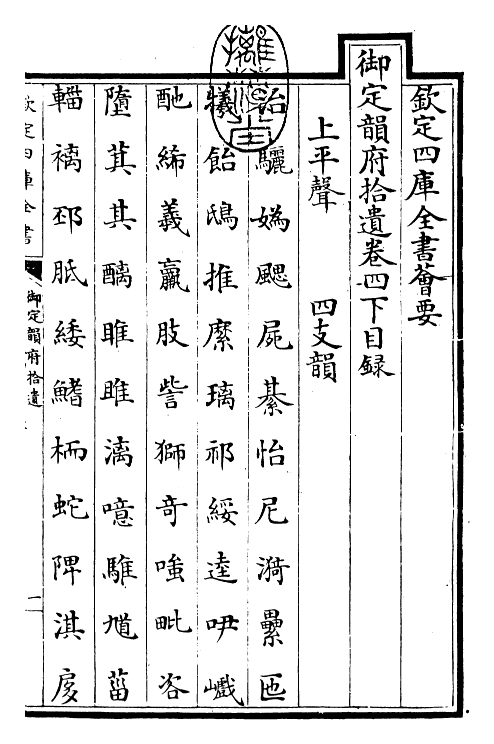 欽定四庫全書薈要
御定韻府拾遺卷四下目録
上平聲 四支韻
治驪媯颸屍綦怡尼漪纍匜
犧飴鴟推縻璃祁綏逵咿巇
酏絺義羸肢訾獅奇嗤毗咨
墮萁其醨睢雎漓噫騅馗菑
輜褵邳胝緌鰭栭蛇陴淇
欽定四庫全書
御定韻府拾遺
一